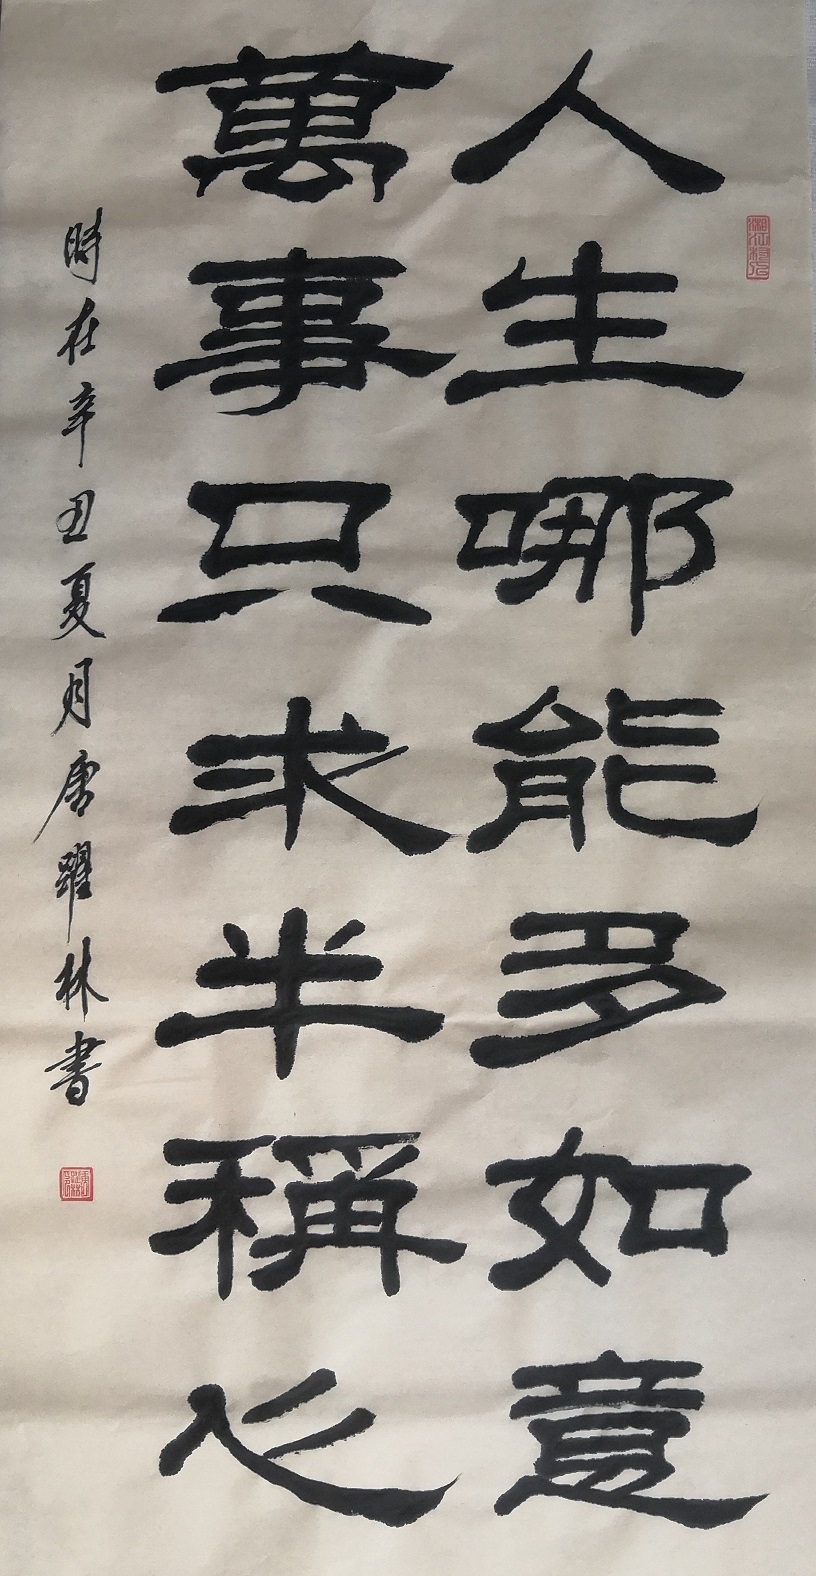 人生哪能多如意
萬事只求半稱心
時在辛丑夏月唐躍林書